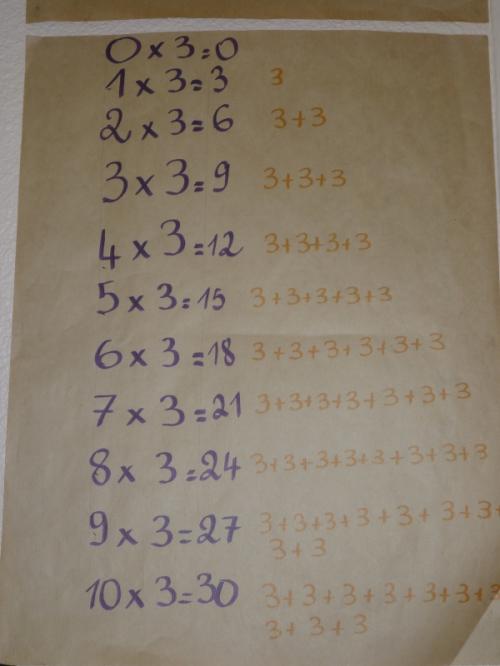 0 x 3 = 0
1 x 3 = 3 3
2 x 3 = 6 3+3
3 x 3 = 9 3+3+3
4 x 3 = 12 3+3+3+3
5 x 3 = 15 3+3+3+3+3
6 x 3 = 18 3+3+3+3+3+3
7 x 3 = 21 3+3+3+3+3+3+3
8 x 3 = 24 3+3+3+3+3+3+3+3
9 x 3 = 27 3+3+3+3+3+3+3+
3+3
10 x 3 = 30 3+3+3+3+3+3+3
3+3+3